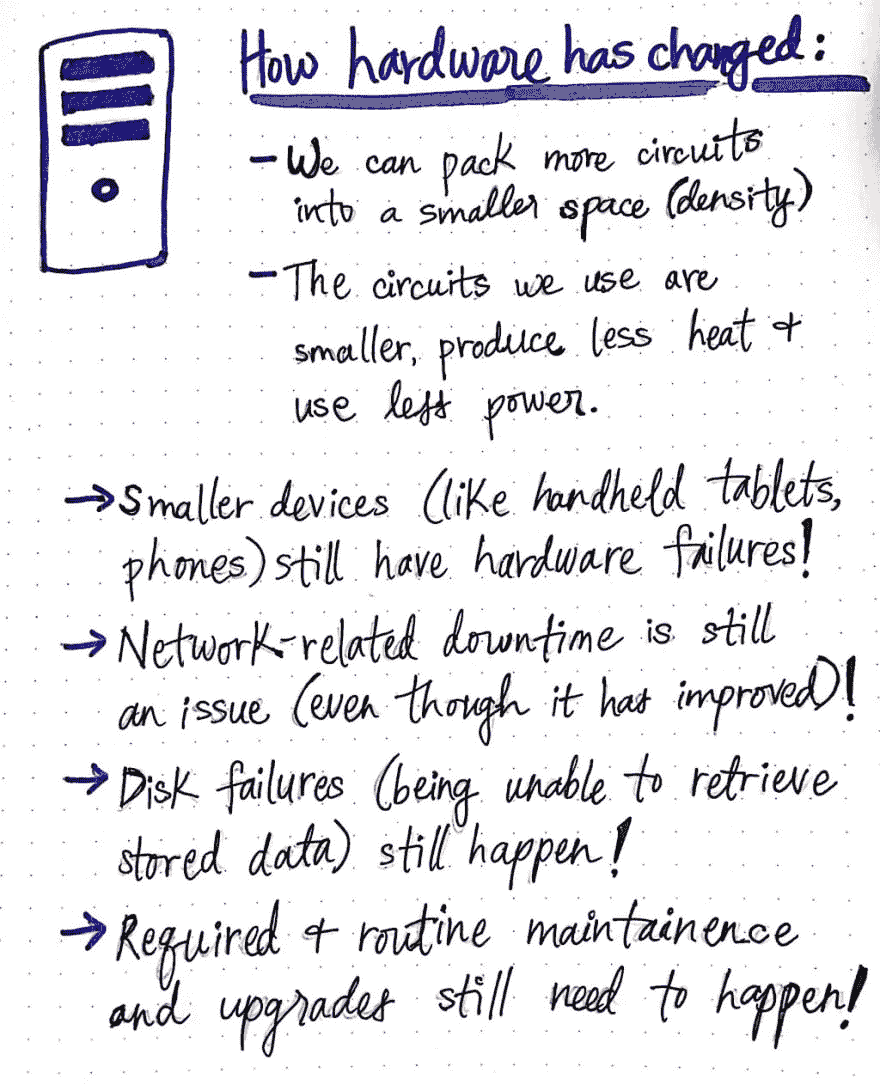 How hardware has changed:
- We can pack more circuits
into a smaller space (density)
- The circuits we use are
smaller, produce less heat +
use less power.
→ Smaller devices (like handheld tablets,
phones) still have hardware failures!
→ Network-related downtime is still
an issue (even though it has improved)!
→ Disk failures (being unable to retrieve
stored data) still happen!
→ Required + routine maintainence
and upgrades still need to happen!